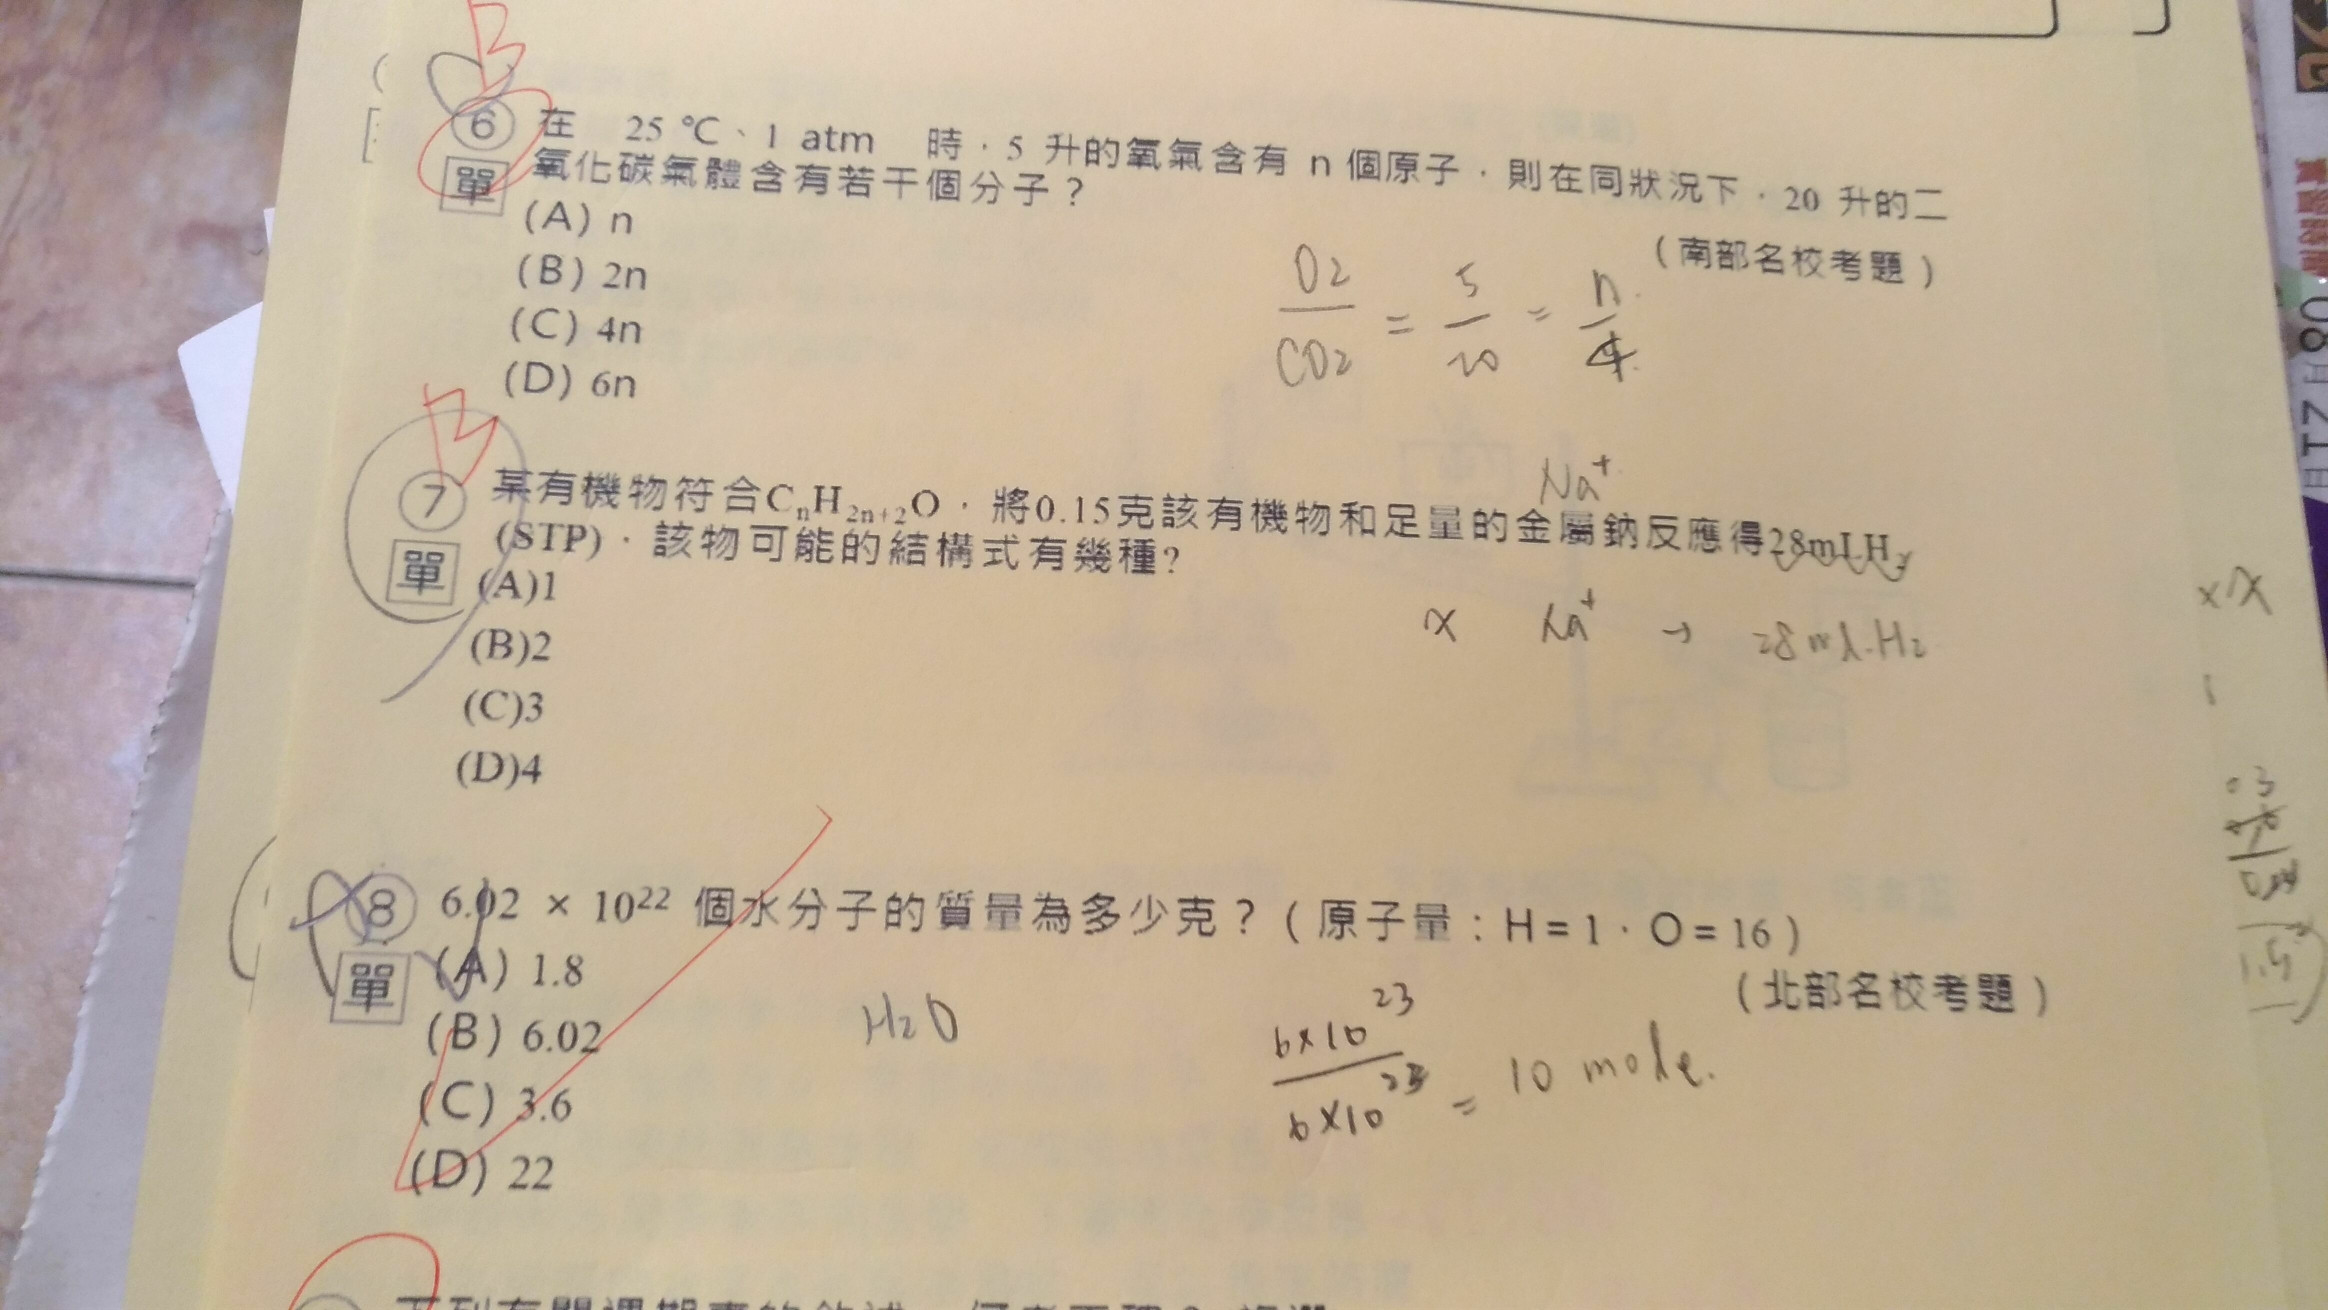 B
⑥ 在 25 ℃、1 atm 時，5 升的氧氣含有 n 個原子，則在同狀況下，20 升的二
單 氧化碳氣體含有若干個分子？
(A) n
(南部名校考題)
(B) 2n
O2/CO2 = 5/20 = n/4
(C) 4n
(D) 6n
B
Na+
⑦ 某有機物符合CnH2n+2O，將0.15克該有機物和足量的金屬鈉反應得28mLH2
單 (STP)，該物可能的結構式有幾種?
(A)1
x Na+ → 28ml.H2
(B)2
(C)3
(D)4
⑧ 6.02 × 10²² 個水分子的質量為多少克？(原子量：H = 1，O = 16)
單 (A) 1.8
(北部名校考題)
(B) 6.02
H2O
6×10²³
(C) 3.6
6×10²³ = 10 mole.
(D) 22